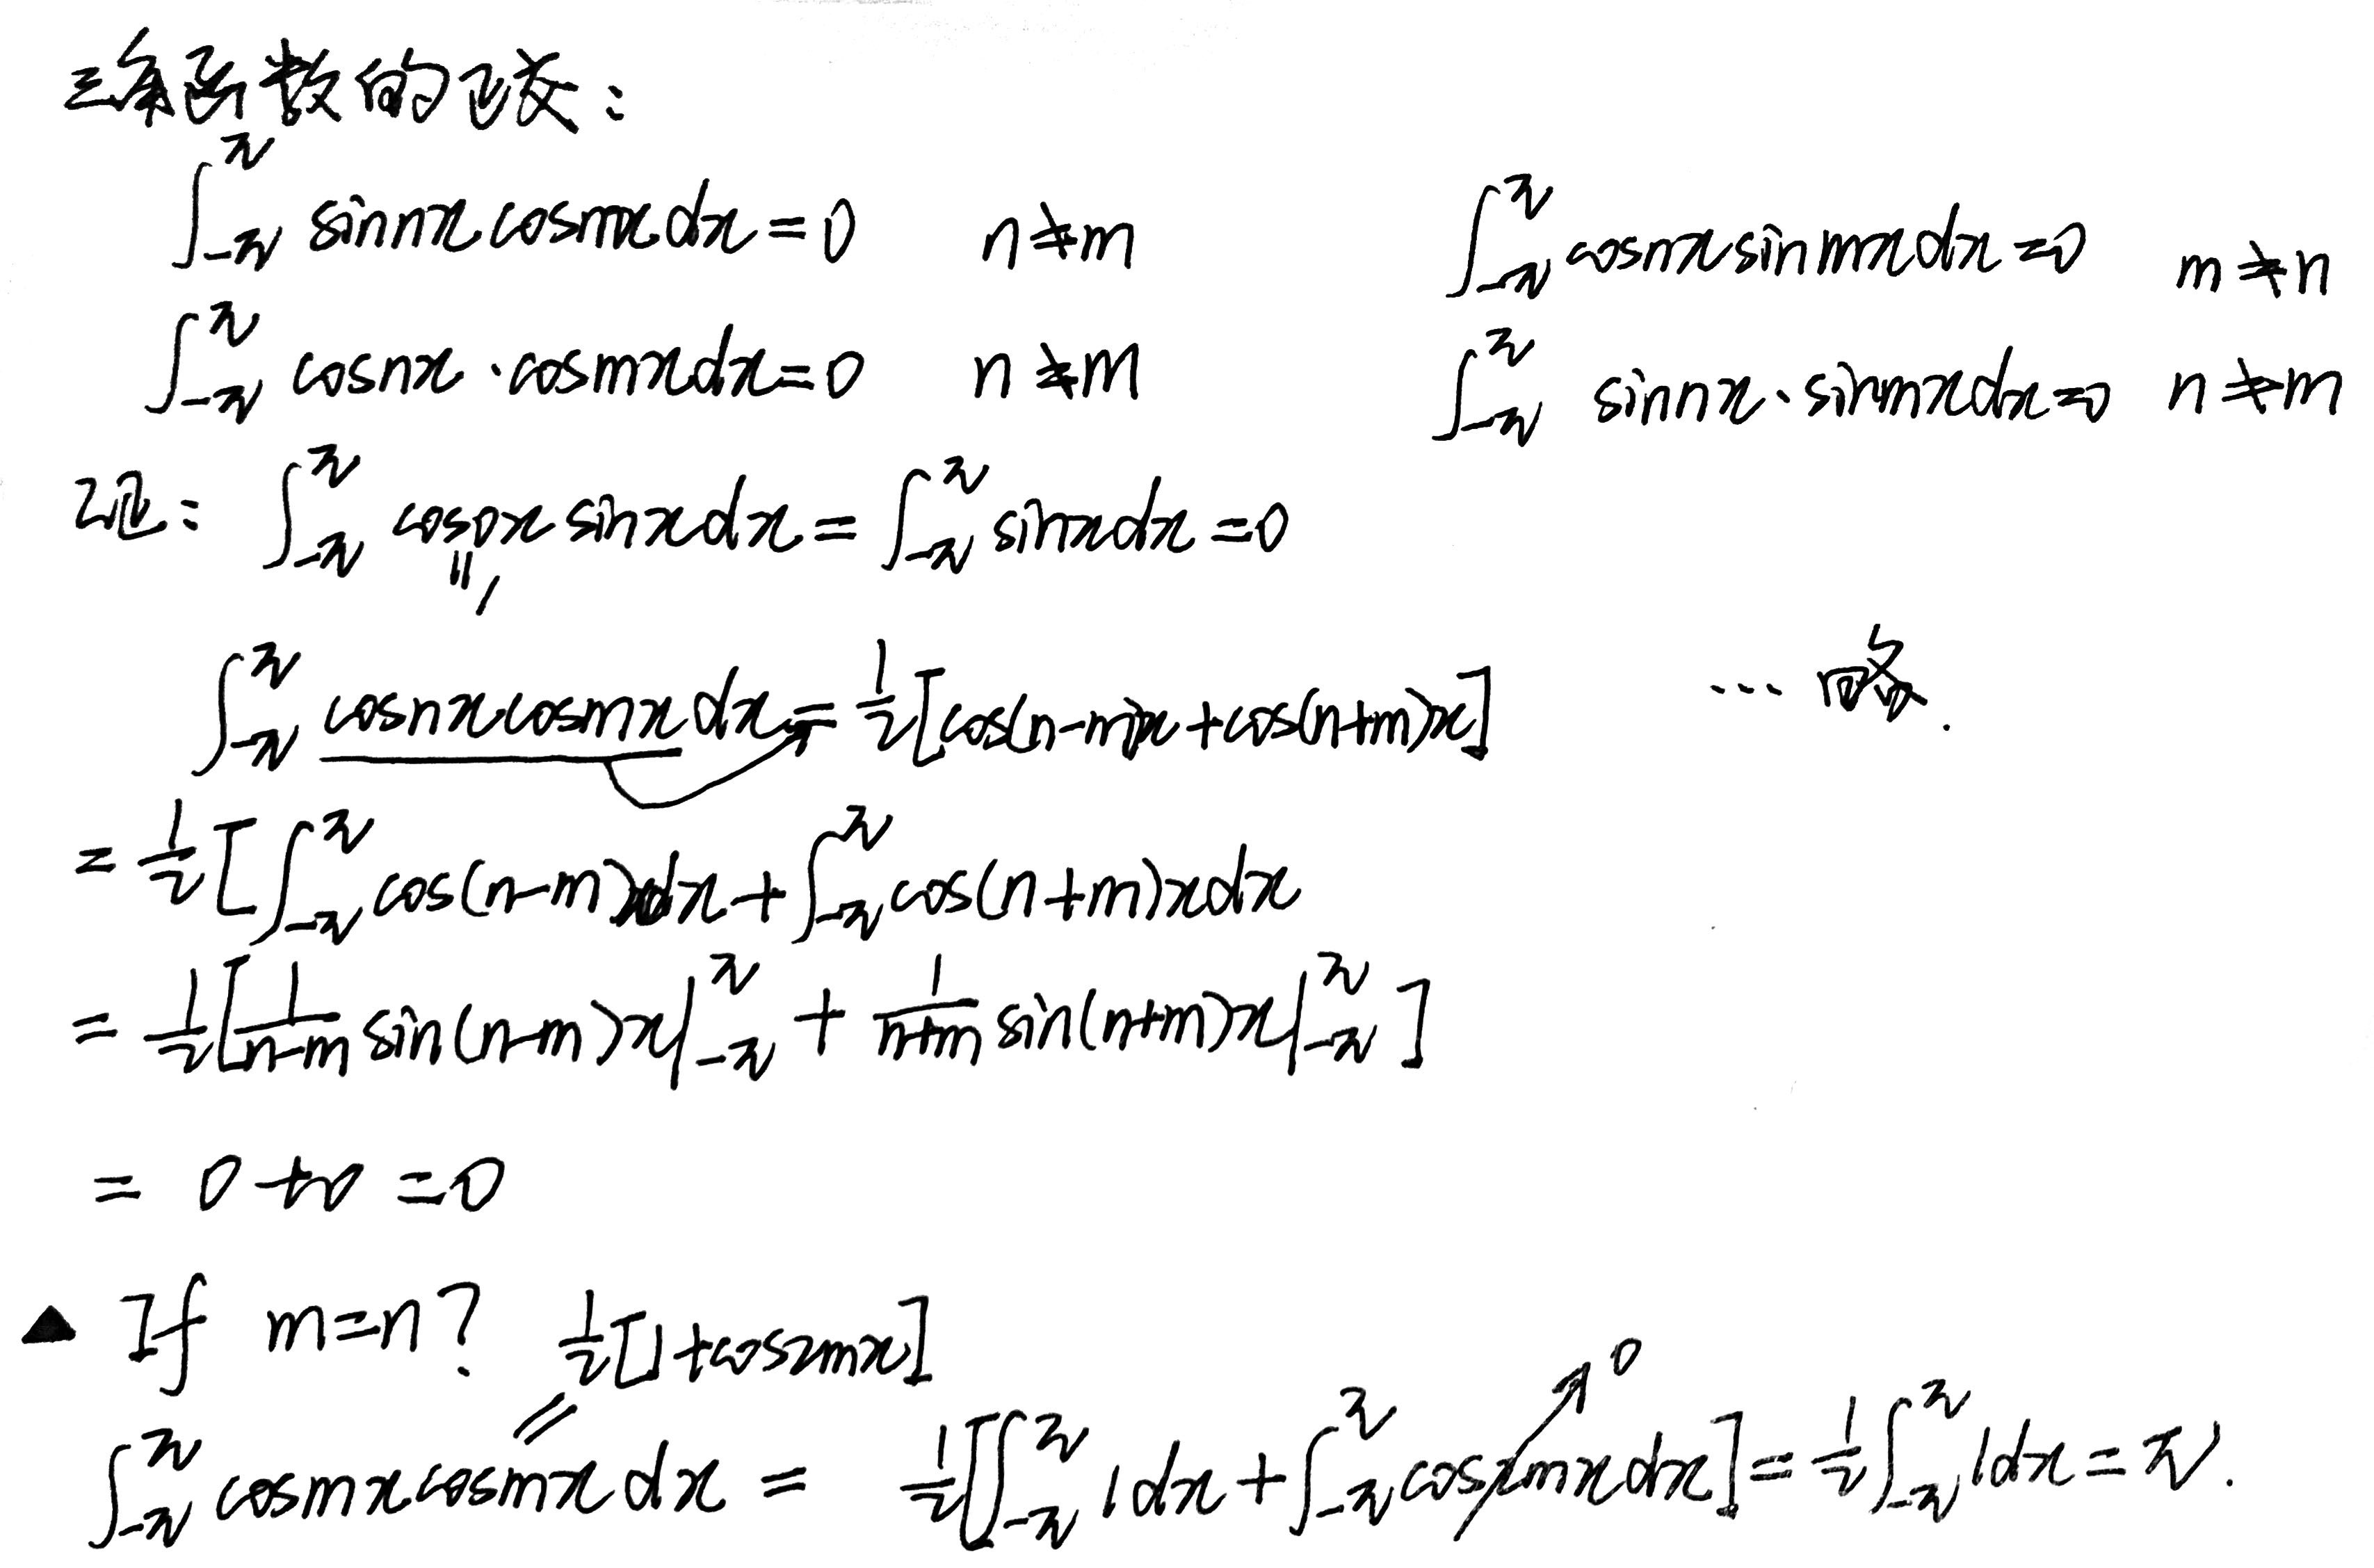 三角函数的正交：
∫_{-π}^{π} sinnx cosmx dx = 0  n≠m  ∫_{-π}^{π} cosnx sinmx dx = 0  m≠n
∫_{-π}^{π} cosnx · cosmx dx = 0  n≠m  ∫_{-π}^{π} sinnx · sinmx dx = 0  n≠m
证： ∫_{-π}^{π} cos0x sinx dx = ∫_{-π}^{π} sinx dx = 0
= 1
∫_{-π}^{π} cosnx cosmx dx = 1/2 [cos(n-m)x + cos(n+m)x]  … 略.
= 1/2 [ ∫_{-π}^{π} cos(n-m)x dx + ∫_{-π}^{π} cos(n+m)x dx
= 1/2 [ 1/(n-m) sin(n-m)x |_{-π}^{π} + 1/(n+m) sin(n+m)x |_{-π}^{π} ]
= 0 + 0 = 0
▲ If m=n? 1/2 [1 + cos2mx]
=
∫_{-π}^{π} cosmx cosmx dx = 1/2 [ ∫_{-π}^{π} 1 dx + ∫_{-π}^{π} cos2mx dx ]↗0 = 1/2 ∫_{-π}^{π} 1 dx = π.